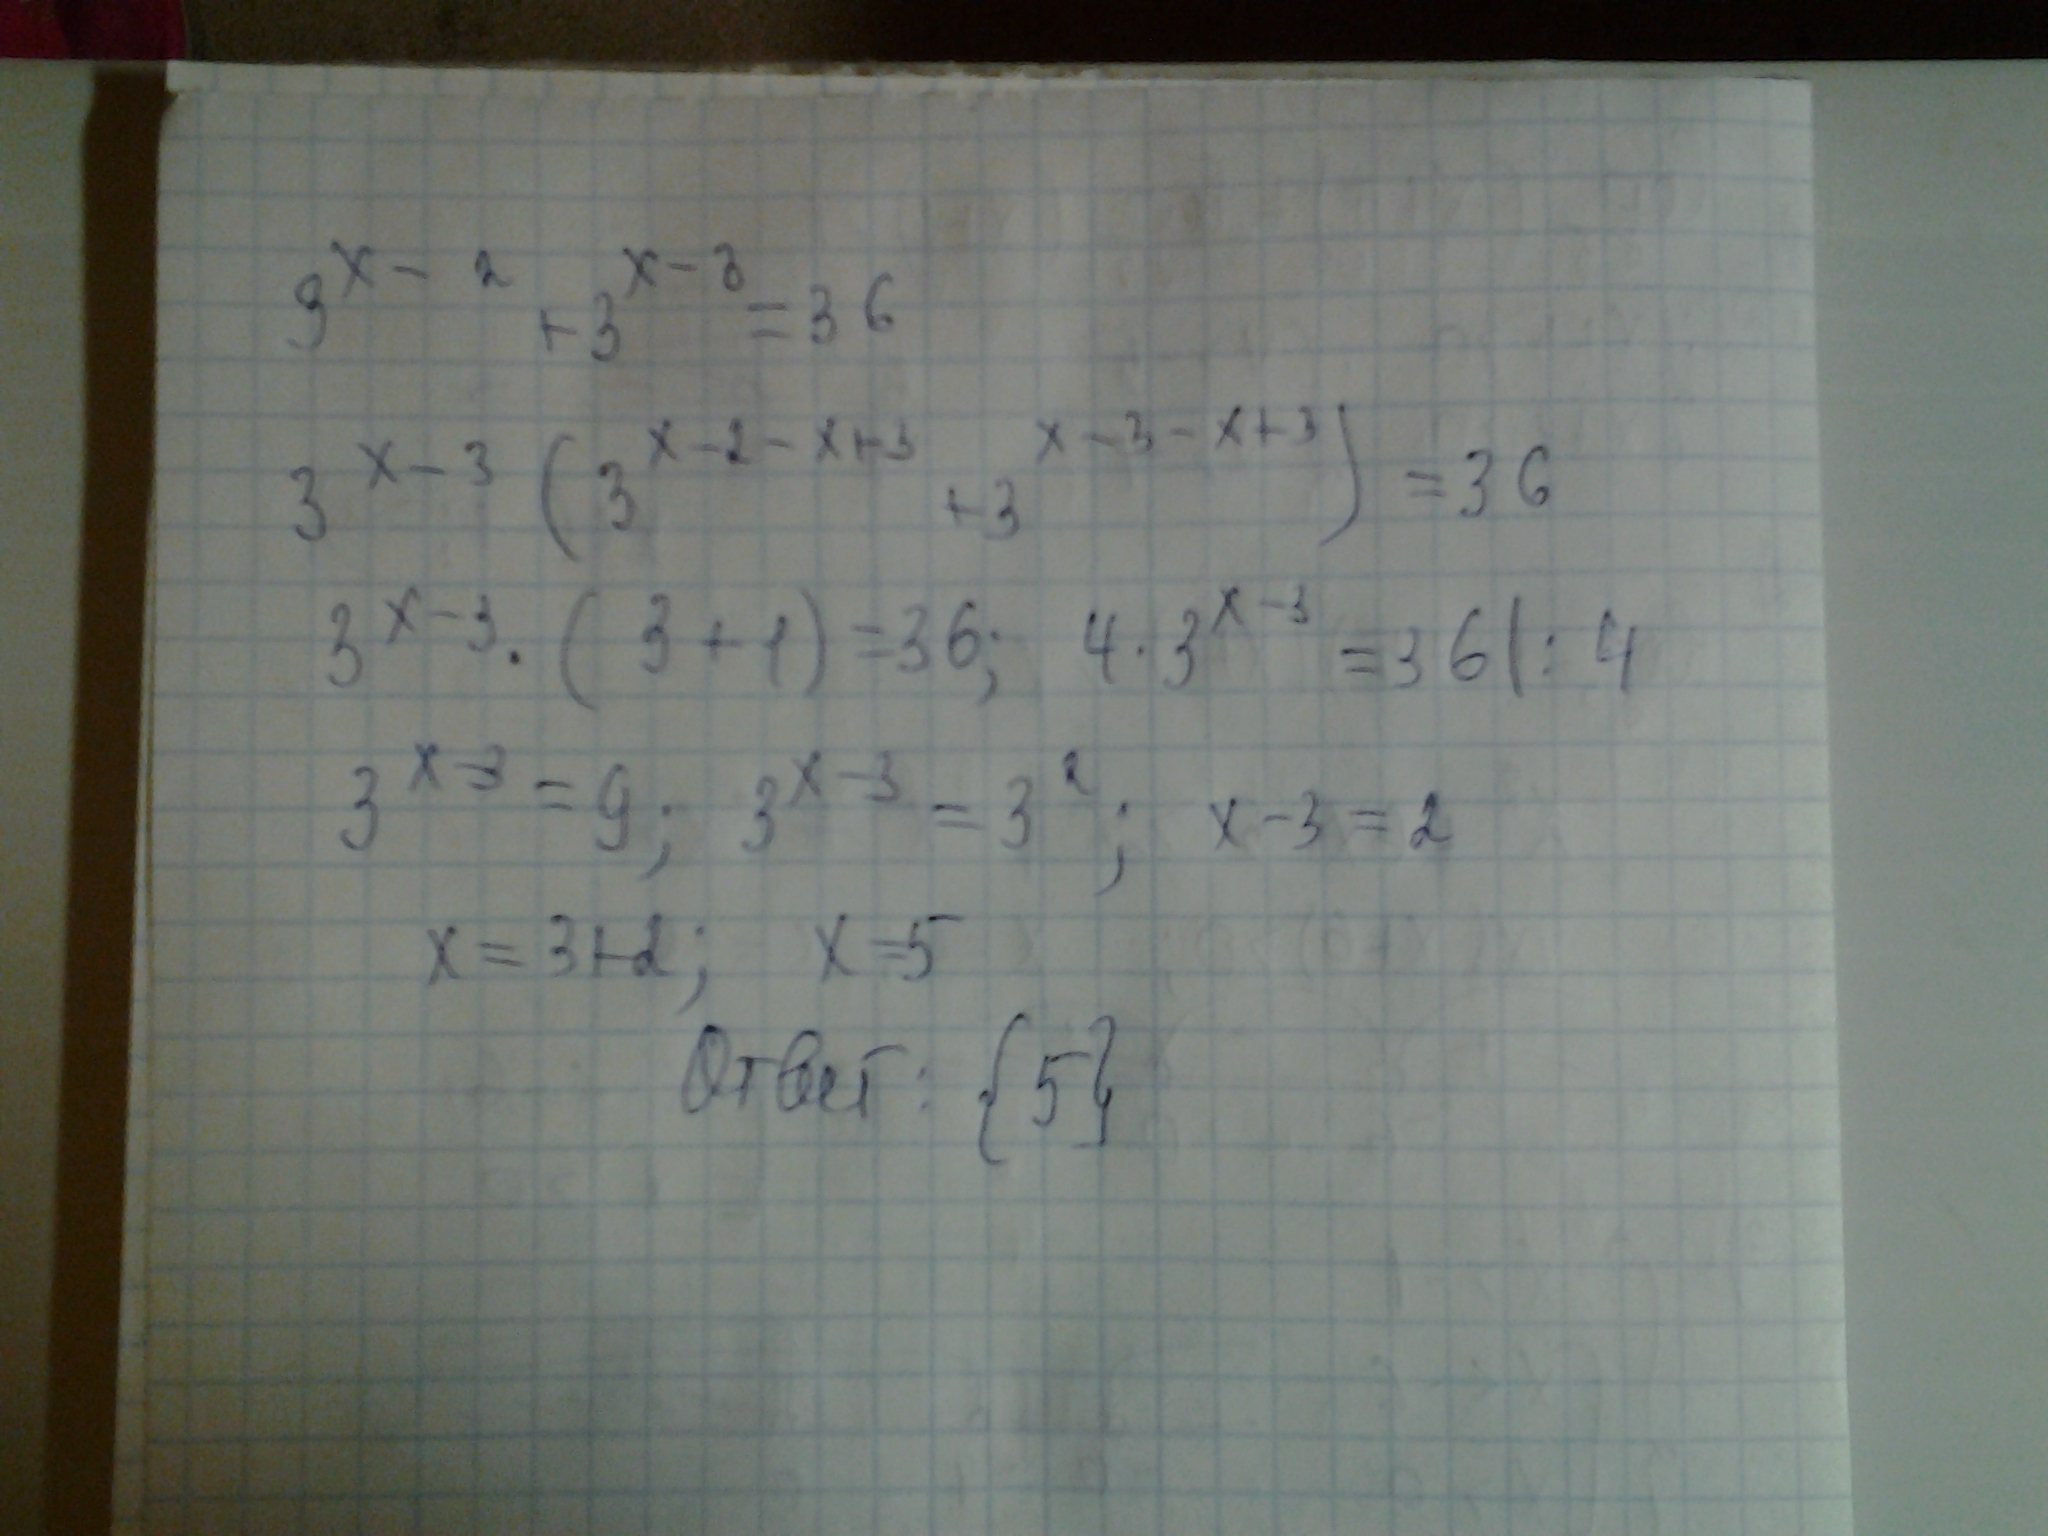 3^{x-2} + 3^{x-3} = 36
3^{x-3} (3^{x-2-x+3} + 3^{x-3-x+3}) = 36
3^{x-3} · (3 + 1) = 36; 4 · 3^{x-3} = 36 | : 4
3^{x-3} = 9; 3^{x-3} = 3^2; x - 3 = 2
x = 3 + 2; x = 5
Ответ: {5}